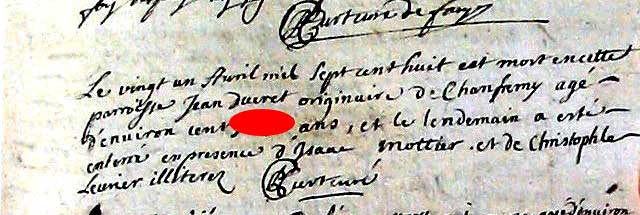 Curteuré de fay
Le vingt un Avril mil Sept cent huit est mort en cette
parroisse Jean Dueret originaire de Chanfremy agé
d'environ cent ans, et le lendemain a esté
enterré en presence d'Isaac mottier et de Christophle
Levrier illiterez Curteuré